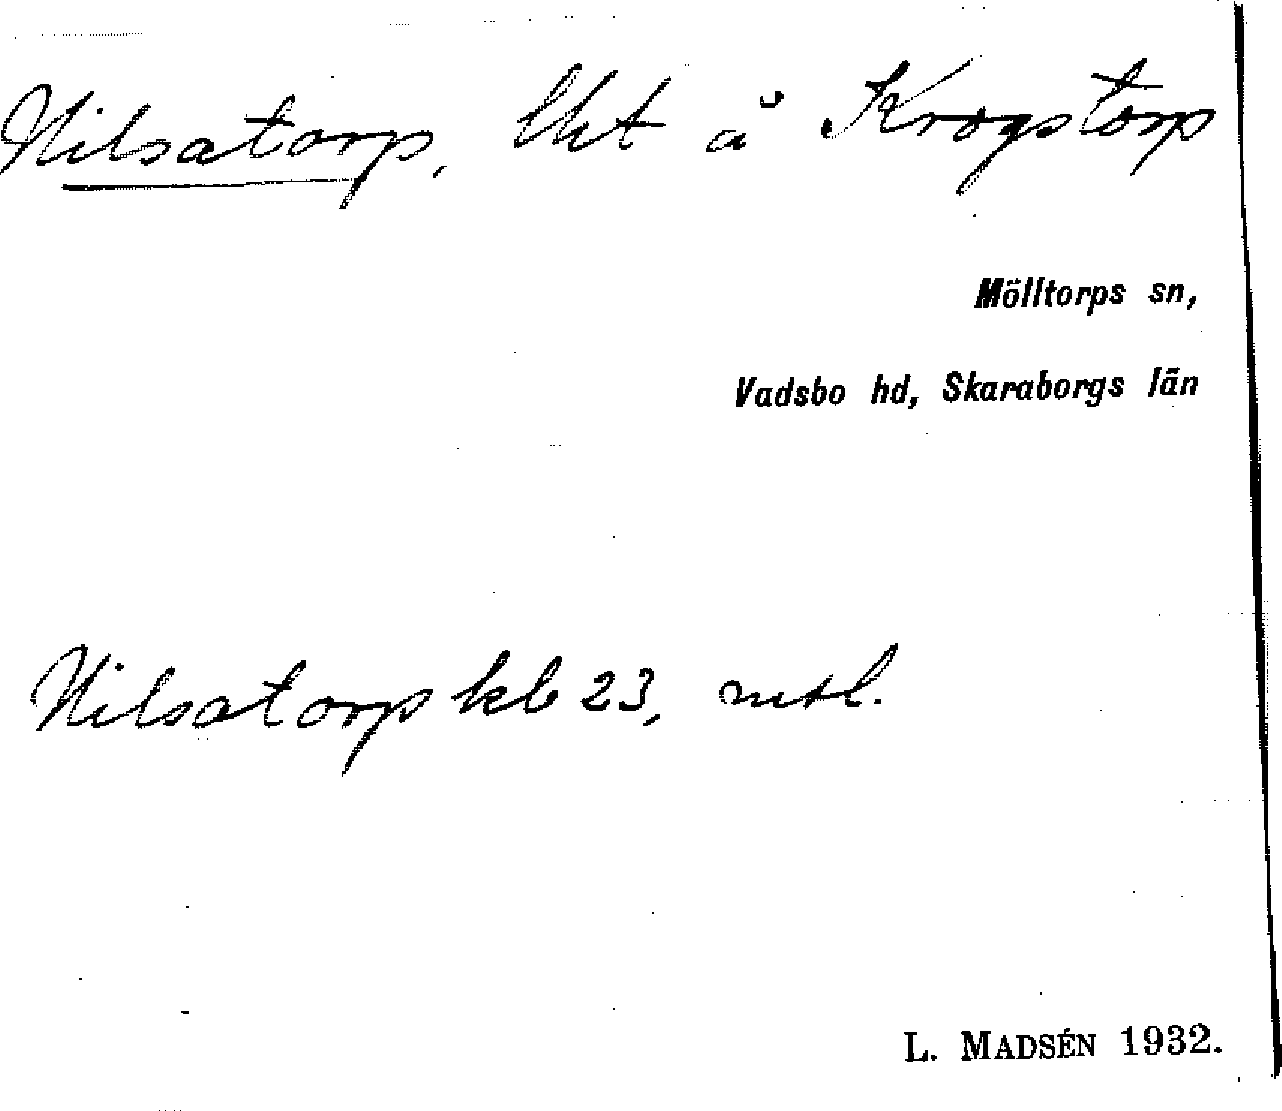 Nilsatorp, lht å Krogstorp
Mölltorps sn,
Vadsbo hd, Skaraborgs län
Nilsatorp kb 23, mtl.
L. MADSÉN 1932.